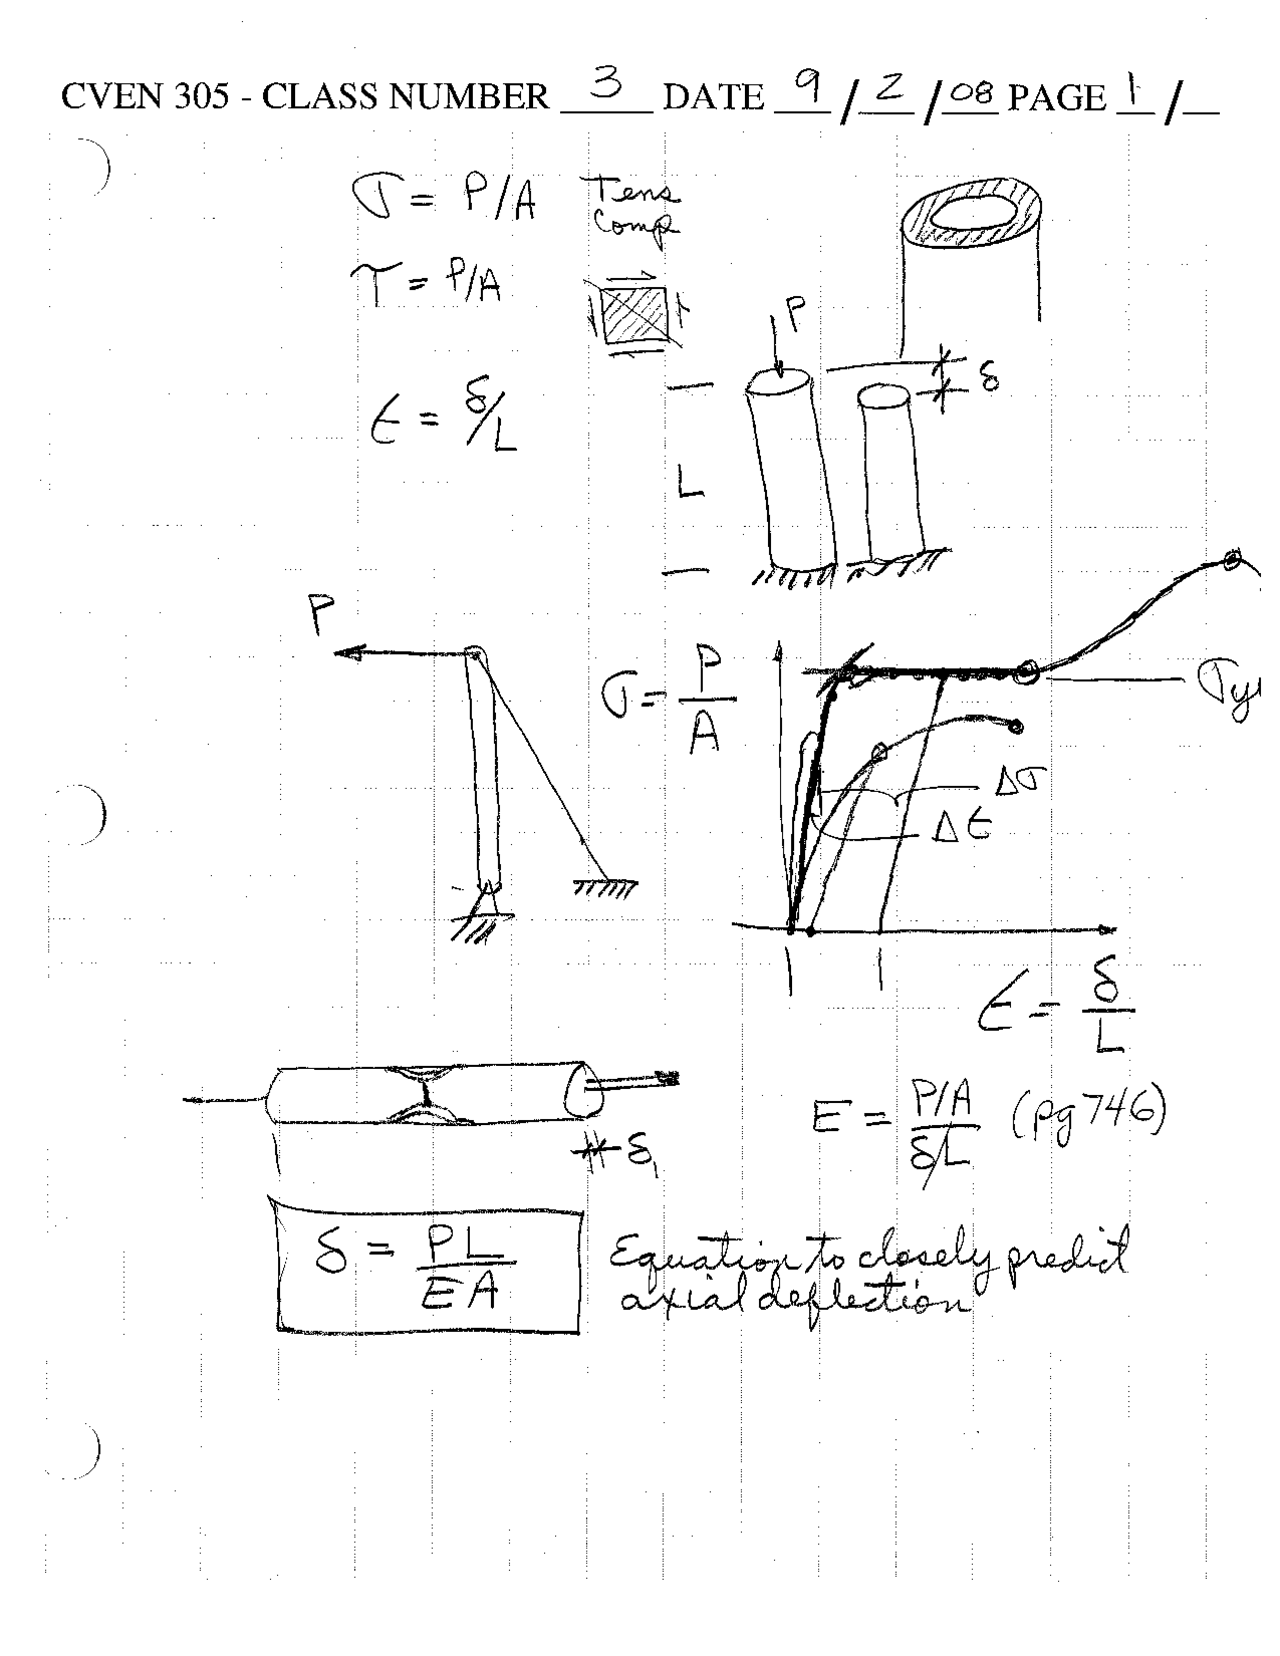 CVEN 305 - CLASS NUMBER 3 DATE 9/2/08 PAGE 1/
σ = P/A Tens
Comp
τ = P/A
P
δ
ε = δ/L
L
P
σ = P/A
σy
Δσ
Δε
ε = δ/L
E = P/A / δ/L (pg 746)
δ1
δ = PL/EA
Equation to closely predict
axial deflection